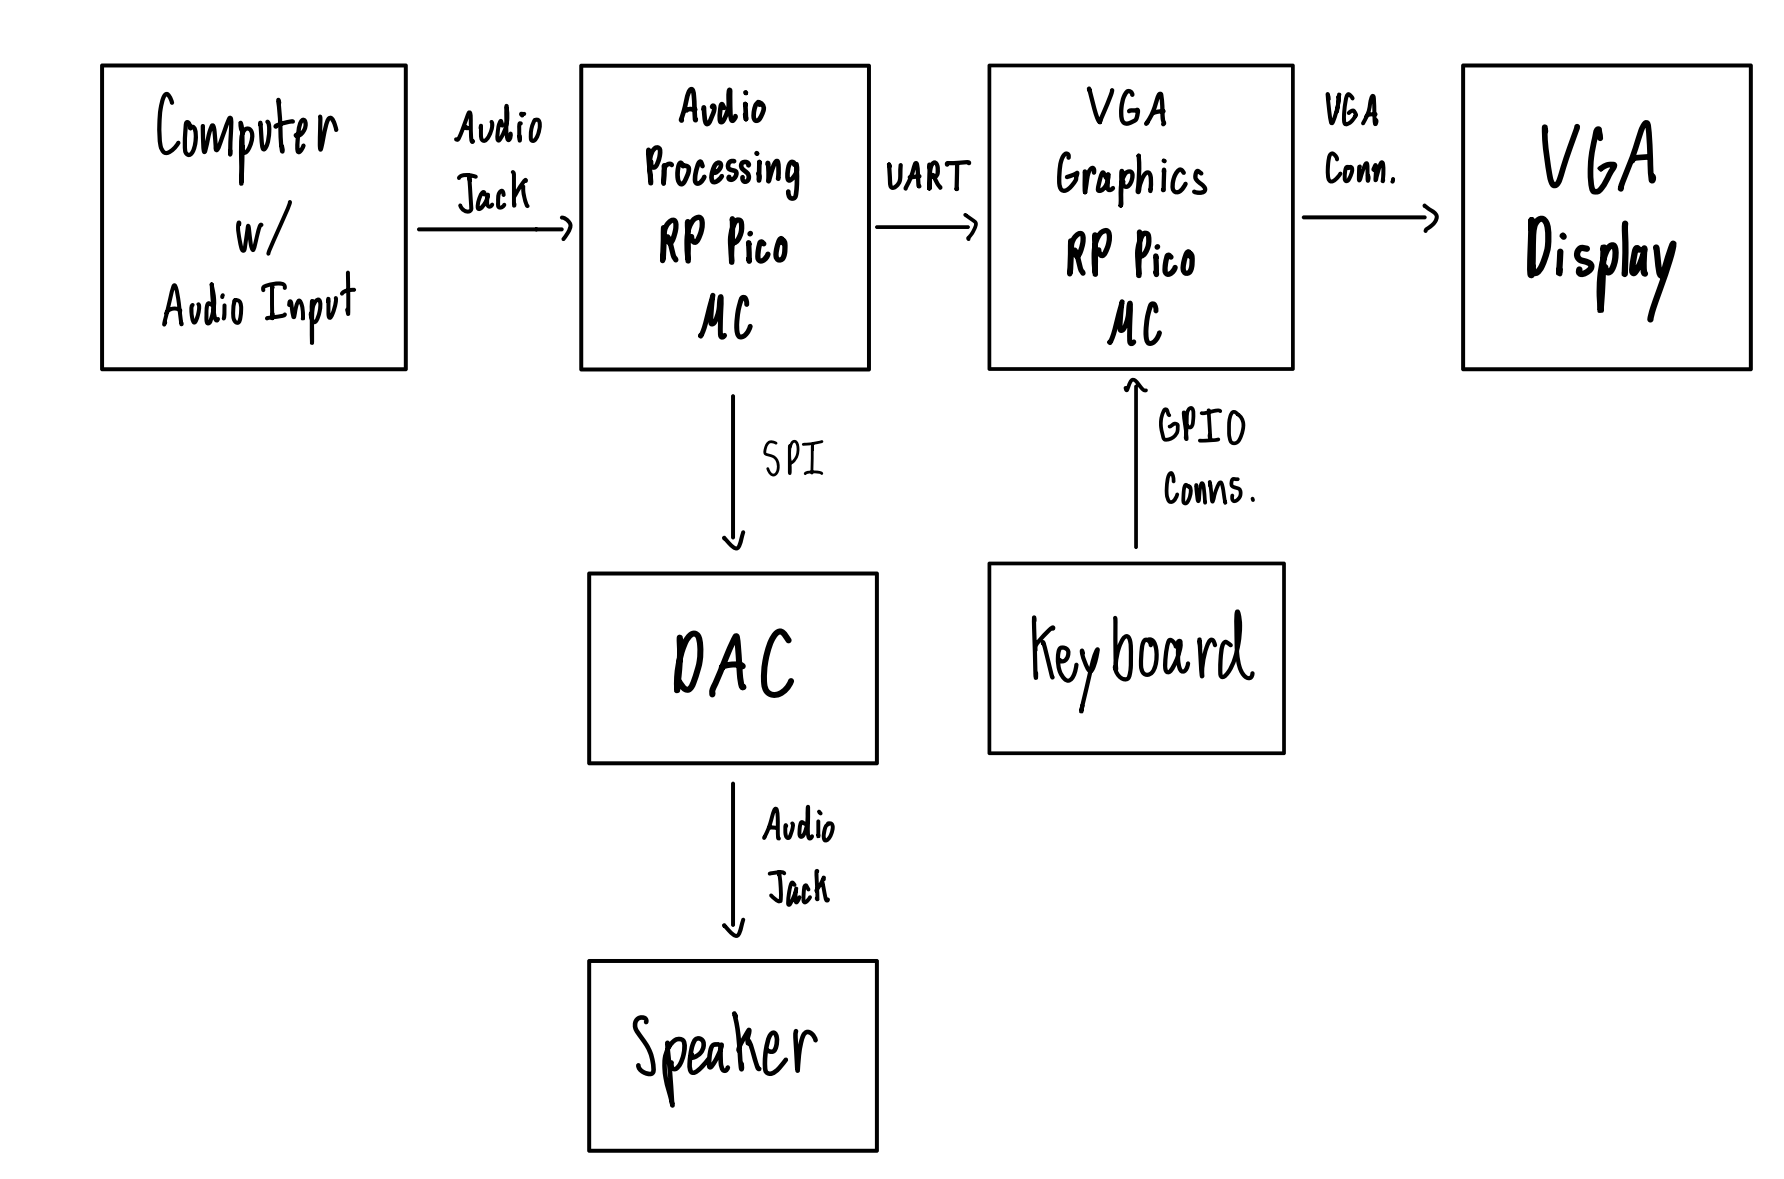 Computer
w/
Audio Input
Audio
Jack
Audio
Processing
RP Pico
MC
UART
VGA
Graphics
RP Pico
MC
VGA
Conn.
VGA
Display
SPI
GPIO
Conns.
DAC
Keyboard
Audio
Jack
Speaker